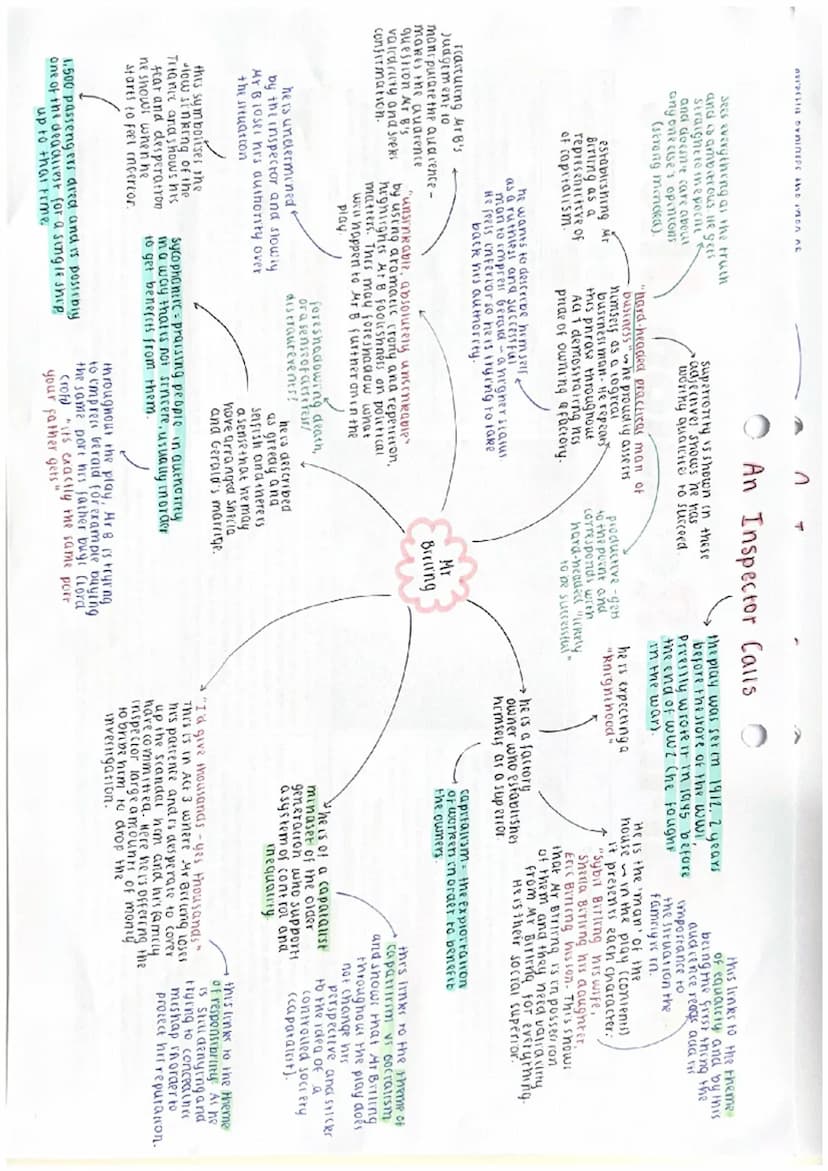 An Inspector Calls
Mr
Birling
sees everything as the truth
and is amateous. He gets
straight to the point
and doesn't care about
anyone else's opinions
(strong minded)
establishing Mr
Birling as a
representative of
capitalism.
"hard-headed practical man of
business" ~ he proudly asserts
himself as a logical
businessman. He repeats
this phrase throughout
Act 1 demonstrating his
pride of owning a factory.
superiority is shown in these
adjectives, shows he has
worthy qualities to succeed.
productive - gets
to the point and
corresponds with
hard-headed "likely
to be successful"
he wants to describe himself
as a ruthless and successful
man to impress Gerald - a higher status
He feels inferior so he is trying to take
back his authority.
the play was set in 1912, 2 years
before the start of the WW1,
Priestly wrote it in 1945 before
the end of WW2 (he fought
in the war).
he is expecting a
"knighthood"
he is a factory
owner who establishes
himself as a superior
capitalism = the exploitation
of workers in order to benefit
the owners.
He is the man of the
house ~ in the play (contents)
it presents each character:
"Sybil Birling his wife,
Sheila Birling his daughter,
Eric Birling his son. This shows
that Mr Birling is in possession
of them and they need validity
from Mr Birling for everything.
He is their social superior.
this links to the theme
of equality and by this
being the first thing the
audience reads add it
importance to
the situation the
family is in.
featuring Mr B's
judgement to
manipulate the audience -
makes the audience
question Mr B's
validity and seeks
confirmation.
"unsinkable, absolutely unsinkable"
by using dramatic irony and repetition,
highlights Mr B foolishness on political
matters. This may foreshadow what
will happen to Mr B further in the
play
he is undermined
by the inspector and slowly
Mr B loses his authority over
the situation
this symbolises the
slow sinking of the
Titanic and shows his
fear and desperation
he shows when he
starts to feel inferior.
1,500 passengers died and is possibly
one of the deadliest for a single ship
up to that time.
foreshadowing death,
or a sense of disaster/
disturbance?
he is described
as greedy and
selfish and there is
a sense that he may
have arranged Sheila
and Gerald's marriage.
Sycophantic - praising people in authority
in a way that's not sincere, usually in order
to get benefits from them.
throughout the play, Mr B is trying
to impress Gerald for example buying
the same port his father buys (Lord
Croft) "it's exactly the same port
your father gets"
he is of a capitalist
mindset of the older
generation who support
a system of control and
inequality
this links to the theme of
capitalism vs socialism
and shows that Mr Birling
throughout the play does
not change his
perspective and sticks
to the idea of a
controlled society
(capitalist).
"I'd give thousands - yes thousands"
This is in Act 3 where Mr Birling loses
his patience and is desperate to cover
up the scandal him and his family
have committed. Here he is offering the
inspector large amounts of money
to bribe him to drop the
investigation.
this links to the theme
of responsibility as he
is still denying and
trying to conceal his
misstep in order to
protect his reputation.